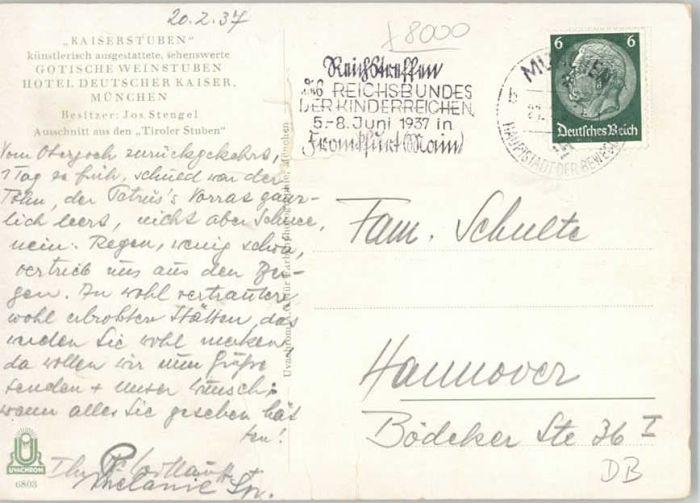 20.2.37
x8000
„KAISERSTUBEN"
künstlerisch ausgestattete, sehenswerte
GOTISCHE WEINSTUBEN
HOTEL DEUTSCHER KAISER,
MÜNCHEN
Besitzer: Jos Stengel
Ausschnitt aus den „Tiroler Stuben"
Vom Oberjoch zurückgekehrt,
1 Tag zu früh, schuld war der
Föhn, der Petrus's Vorrat gänz-
lich leert, nicht aber Schnee,
nein: Regen, wenig schön,
vertrieb uns aus den Ber-
gen. Zu wohl vertrauten
wohl erprobten Stätten, das
werden Sie wohl merken
da wollen wir nun Grüße
senden + unser Wunsch:
wenn alles Sie gesehen hät
ten!
Ihr
Melanie
UVACHROM
6803
Reichstreffen
des REICHSBUNDES
DER KINDERREICHEN
5.-8. Juni 1937 in
Frankfurt Main
MÜNCHEN
HAUPTSTADT DER BEWEGUNG
6 6
Deutsches Reich
Fam. Schulte
Hannover
Bödeker Str 36 I
DB